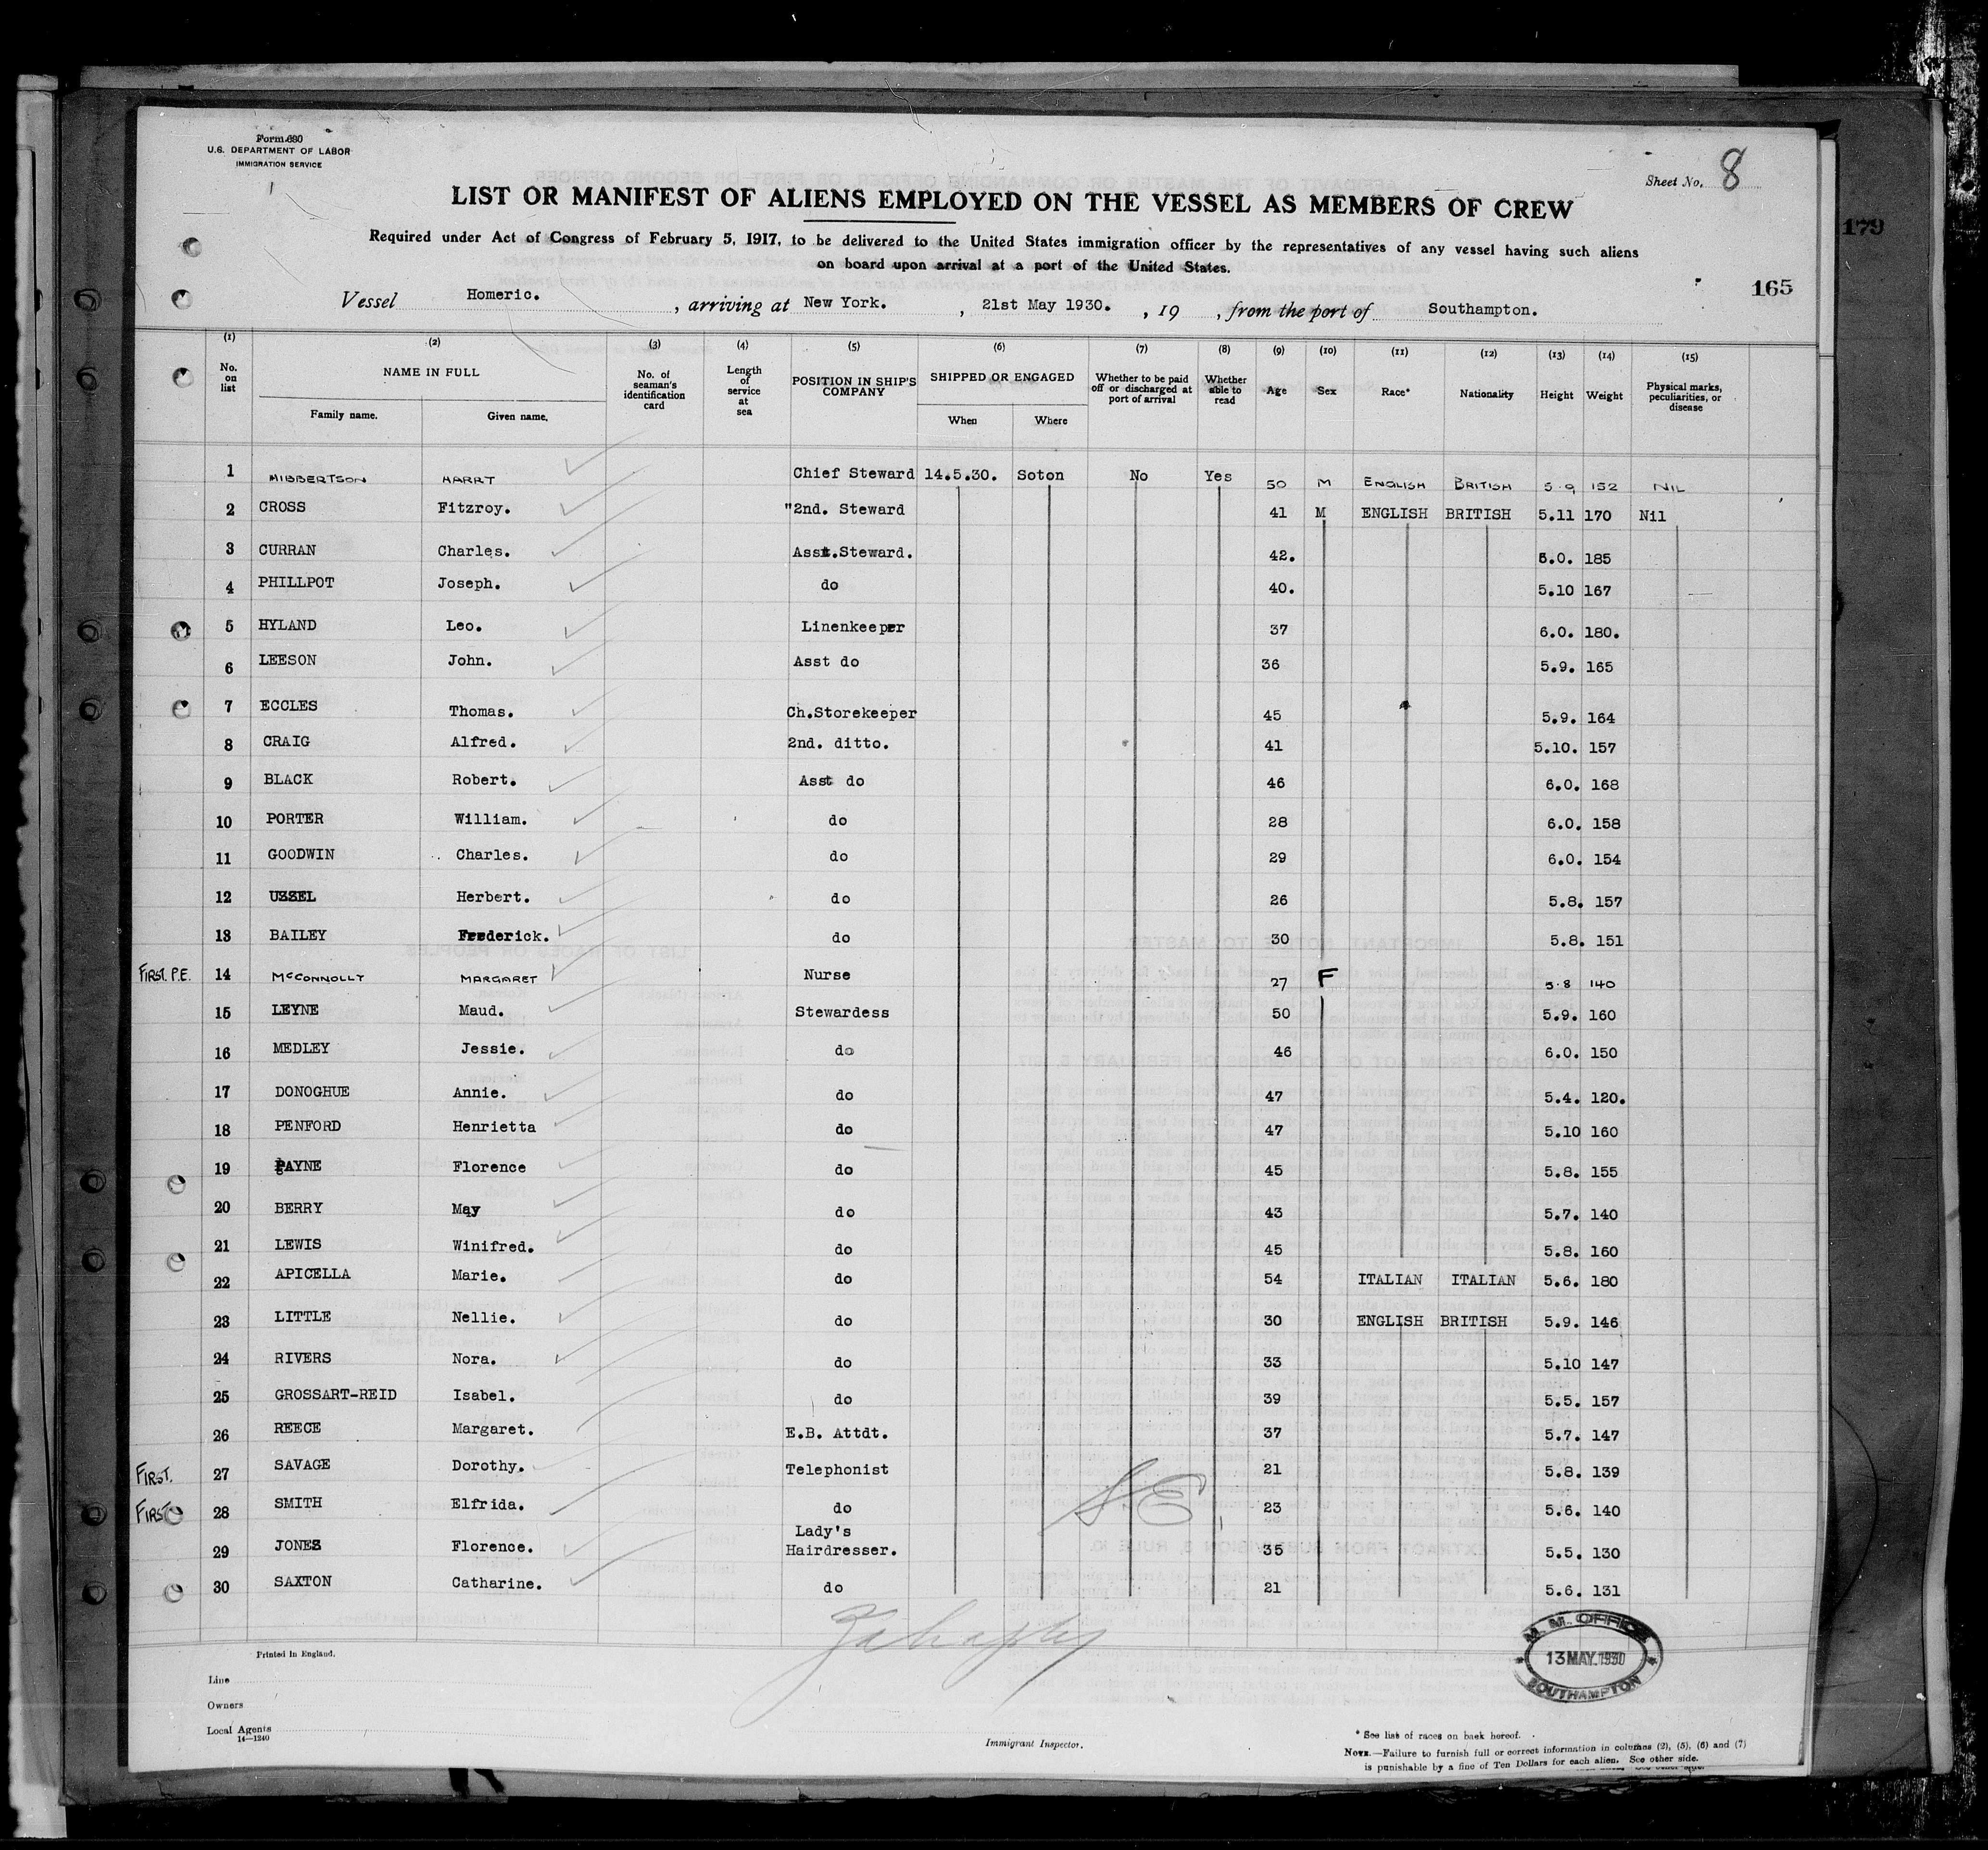 Form 680
U.S. DEPARTMENT OF LABOR
IMMIGRATION SERVICE
Sheet No. 8
LIST OR MANIFEST OF ALIENS EMPLOYED ON THE VESSEL AS MEMBERS OF CREW
179
Required under Act of Congress of February 5, 1917, to be delivered to the United States immigration officer by the representatives of any vessel having such aliens
on board upon arrival at a port of the United States.
165
Vessel Homeric. , arriving at New York. , 21st May 1930. , 19 , from the port of Southampton.
(1) (2) (3) (4) (5) (6) (7) (8) (9) (10) (11) (12) (13) (14) (15)
No. on list NAME IN FULL Family name. Given name. No. of seaman's identification card Length of service at sea POSITION IN SHIP'S COMPANY SHIPPED OR ENGAGED When Where Whether to be paid off or discharged at port of arrival Whether able to read Age Sex Race* Nationality Height Weight Physical marks, peculiarities, or disease
1 HIBBERTSON HARRY Chief Steward 14.5.30. Soton No Yes 50 M ENGLISH BRITISH 5.9 152 NIL
2 CROSS Fitzroy. "2nd. Steward 41 M ENGLISH BRITISH 5.11 170 Nil
3 CURRAN Charles. Asst.Steward. 42. 5.0. 185
4 PHILLPOT Joseph. do 40. 5.10 167
5 HYLAND Leo. Linenkeeper 37 6.0. 180.
6 LEESON John. Asst do 36 5.9. 165
7 ECCLES Thomas. Ch.Storekeeper 45 5.9. 164
8 CRAIG Alfred. 2nd. ditto. 41 5.10. 157
9 BLACK Robert. Asst do 46 6.0. 168
10 PORTER William. do 28 6.0. 158
11 GOODWIN Charles. do 29 6.0. 154
12 USSEL Herbert. do 26 5.8. 157
13 BAILEY Frederick. do 30 5.8. 151
FIRST. P.E. 14 McCONNOLLY MARGARET Nurse 27 F 5.8 140
15 LEYNE Maud. Stewardess 50 5.9. 160
16 MEDLEY Jessie. do 46 6.0. 150
17 DONOGHUE Annie. do 47 5.4. 120.
18 PENFORD Henrietta do 47 5.10 160
19 PAYNE Florence do 45 5.8. 155
20 BERRY May do 43 5.7. 140
21 LEWIS Winifred. do 45 5.8. 160
22 APICELLA Marie. do 54 ITALIAN ITALIAN 5.6. 180
23 LITTLE Nellie. do 30 ENGLISH BRITISH 5.9. 146
24 RIVERS Nora. do 33 5.10 147
25 GROSSART-REID Isabel. do 39 5.5. 157
26 REECE Margaret. E.B. Attdt. 37 5.7. 147
FIRST. 27 SAVAGE Dorothy. Telephonist 21 5.8. 139
FIRST 28 SMITH Elfrida. do 23 5.6. 140
29 JONES Florence. Lady's Hairdresser. 35 5.5. 130
30 SAXTON Catharine. do 21 5.6. 131
M. M. OFFICE
13 MAY. 1930
SOUTHAMPTON
Printed in England.
Line
Owners
Local Agents
14—1240
Immigrant Inspector.
* See list of races on back hereof.
NOTE.—Failure to furnish full or correct information in columns (2), (5), (6) and (7)
is punishable by a fine of Ten Dollars for each alien. See other side.